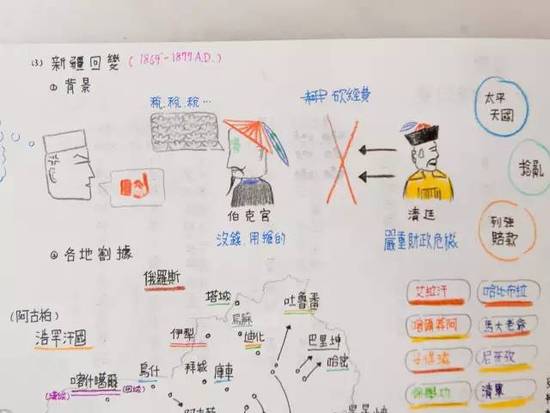 (3) 新疆回變 (1865-1877A.D.)
① 背景
稅、稅、稅…
砍經費
太平
天國
捻亂
伯克官
清廷
沒錢用搶的
嚴重財政危機
列強
賠款
② 各地割據
俄羅斯
塔城
吐魯番
烏蘇
(阿古柏)
浩罕汗國
伊犁
迪化
巴里坤
哈密
喀什噶爾
烏什
拜城
庫車
(漢城)
(回城)
艾拉汗
哈比布拉
馬大老爺
尼牙孜
徐學功
清軍